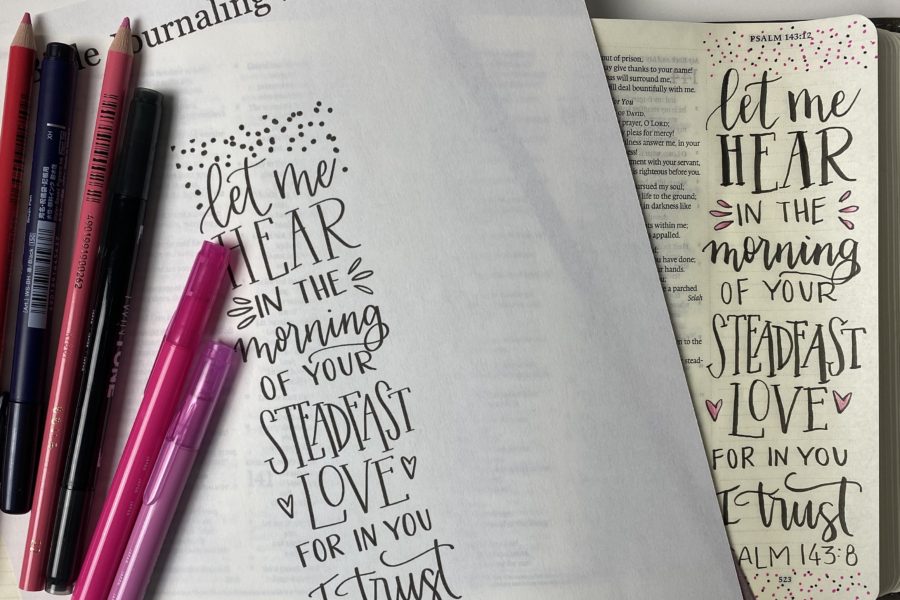 Journaling
let me
HEAR
IN THE
morning
OF YOUR
STEADFAST
LOVE
FOR IN YOU
I trust
PSALM 143:12
out of prison,
give thanks to your name!
will surround me,
will deal bountifully with me.
You
OF DAVID.
prayer, O LORD;
pleas for mercy!
answer me, in your
ment with your servant,
is righteous before you.
pursued my soul;
life to the ground;
in darkness like
within me;
appalled.
you have done;
your hands.
a parched
Selah
let me
HEAR
IN THE
morning
OF YOUR
STEADFAST
LOVE
FOR IN YOU
I trust
PSALM 143:8
523